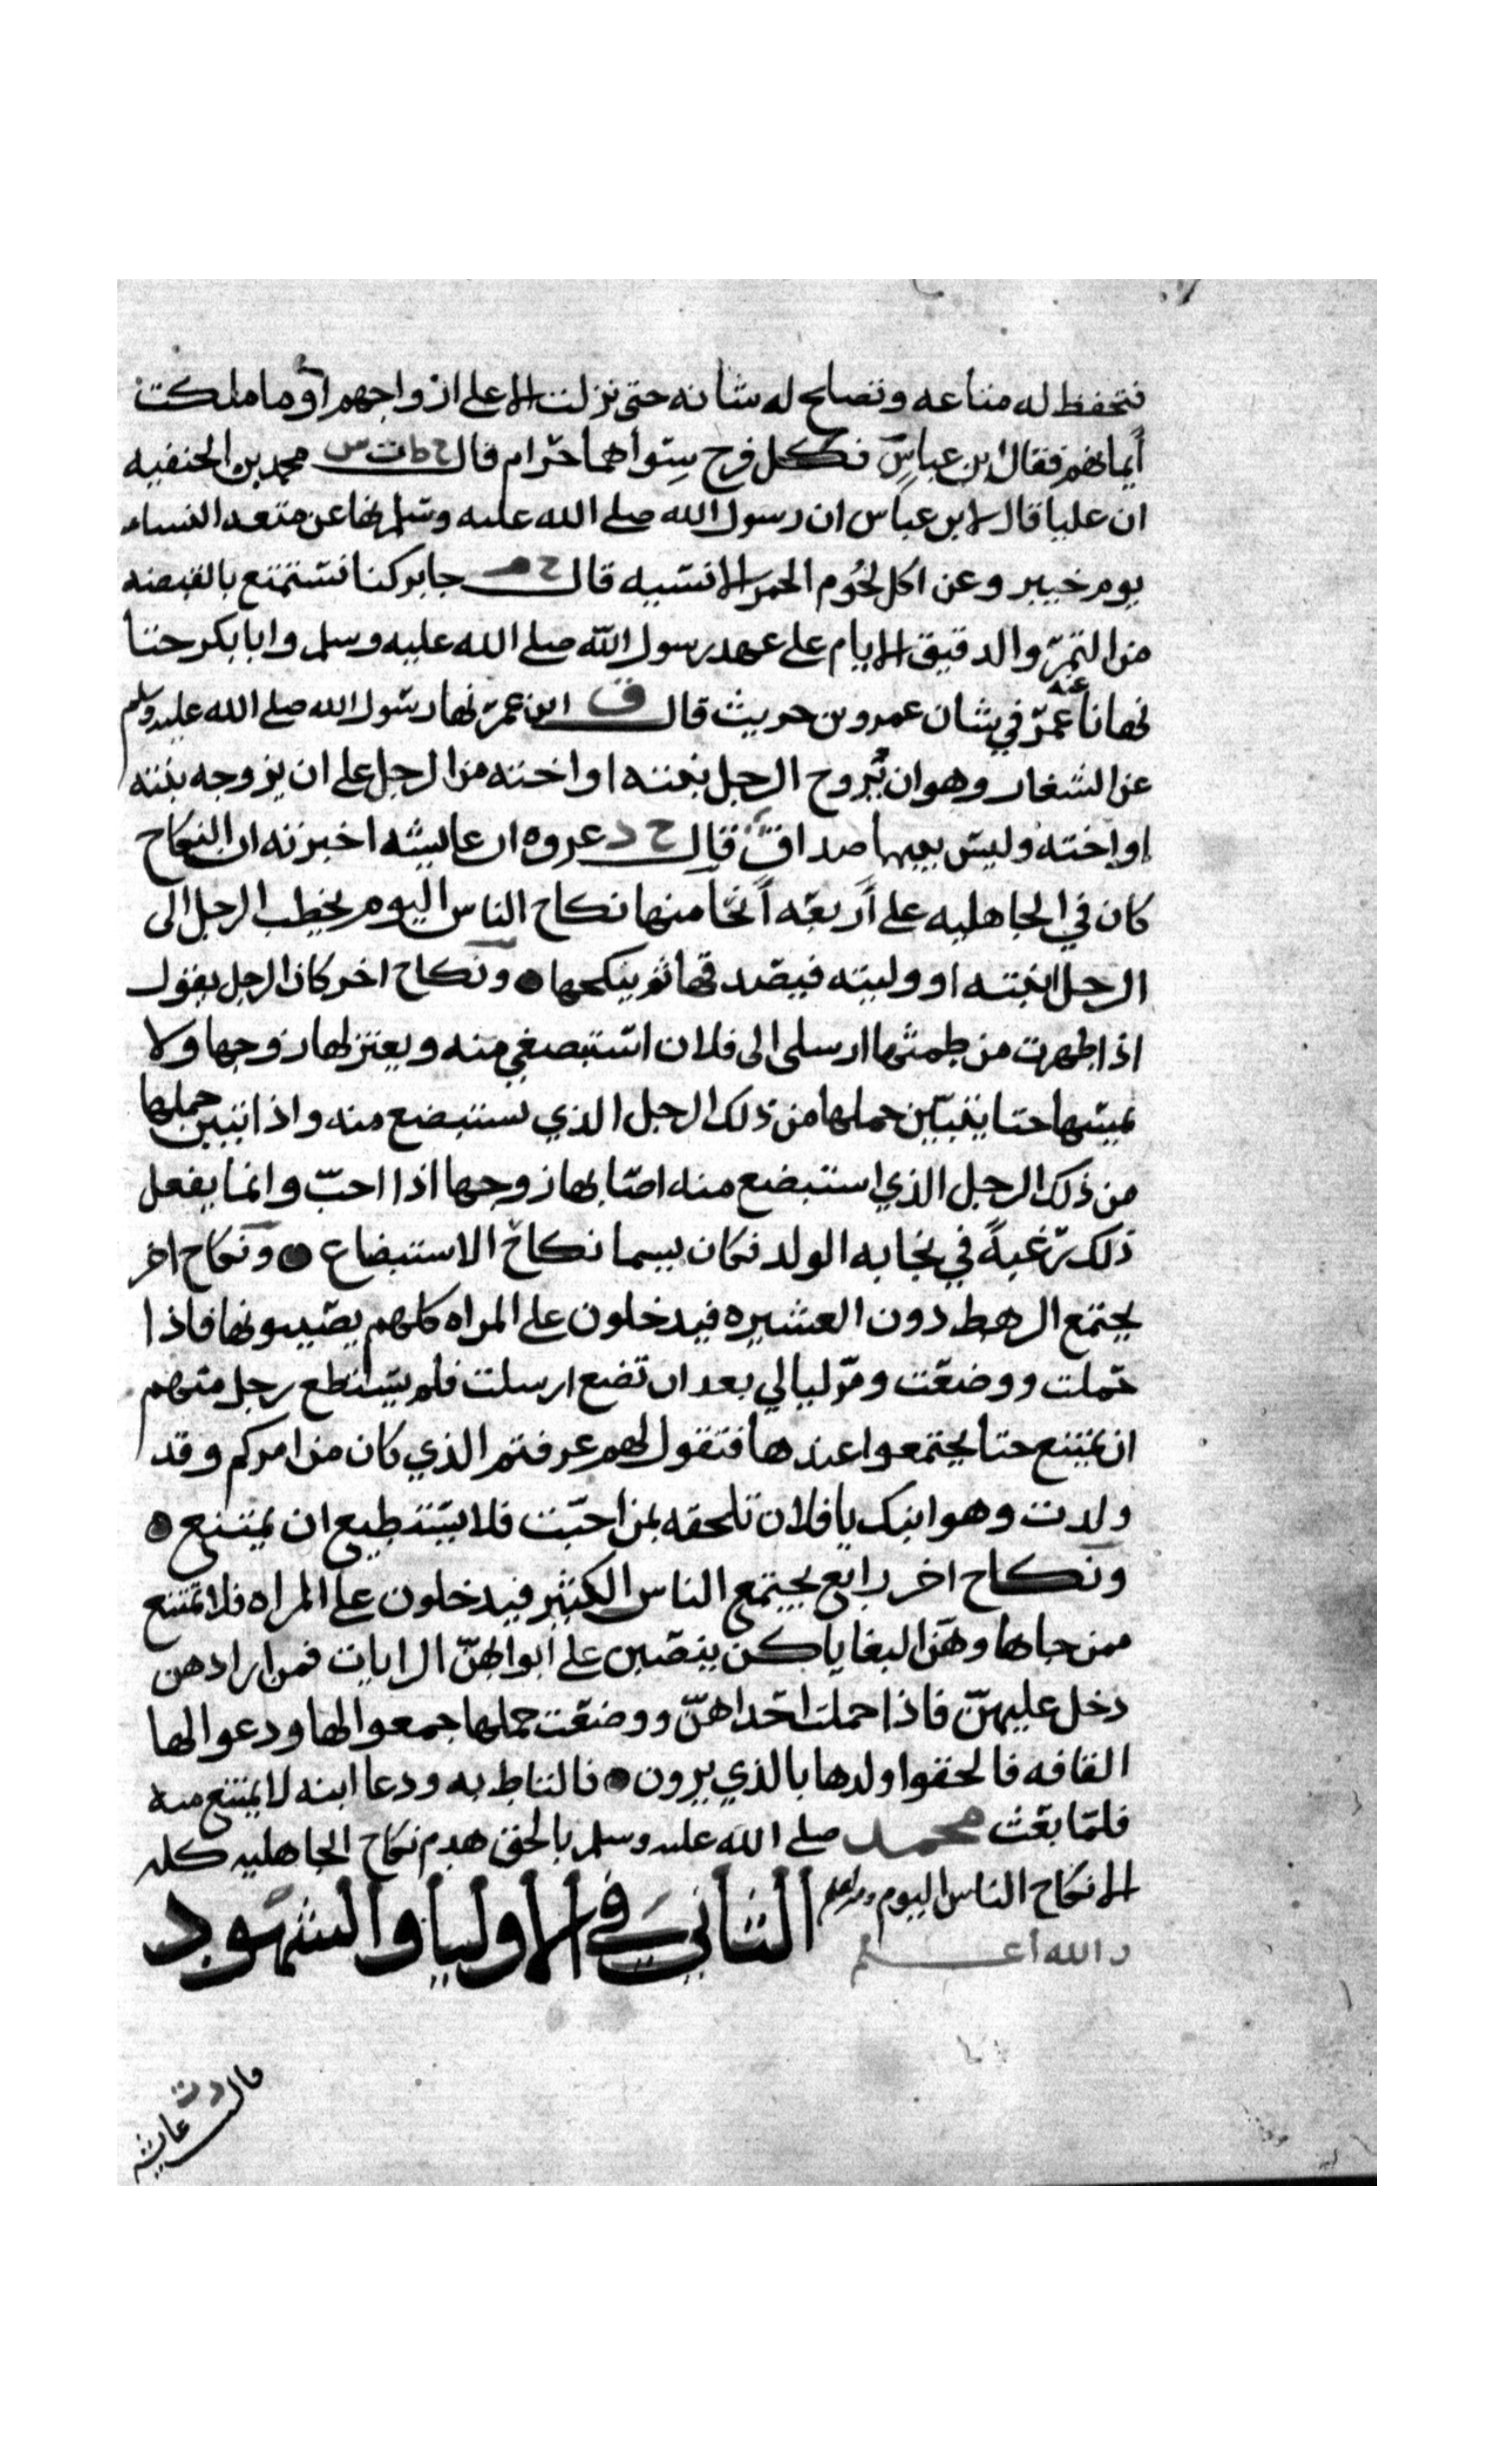 فتحفظ له متاعه وتصلح له شانه حتى نزلت الا على ازواجهم او ما ملكت
أيمانهم فقال ابن عباس فكل فرج سواهما حرام قال خ ط ت س محمد بن الحنفيه
ان عليا قال لابن عباس ان رسول الله صلى الله عليه وسلم نها عن متعه النساء
يوم خيبر وعن اكل لحوم الحمر الانسيه قال خ م جابر كنا نستمتع بالقبضه
من التمر والدقيق الايام على عهد رسول الله صلى الله عليه وسلم وابا بكر حتا
نهانا عنه عمر في شان عمرو بن حريث قال ق ابن عمر نها رسول الله صلى الله عليه وسلم
عن الشغار وهو ان يزوج الرجل بنته او اخته من الرجل على ان يزوجه بنته
او اخته وليس بينهما صداق قال خ د عروه ان عايشه اخبرته ان النكاح
كان في الجاهليه على أربعه أنحا منها نكاح الناس اليوم يخطب الرجل الى
الرجل ابنته او وليته فيصدقها ثم ينكحها ونكاح اخر كان الرجل يقول
اذا طهرت من طمثها ارسلى الى فلان استبضعي منه ويعتزلها زوجها ولا
يمسها حتا يتبين حملها من ذلك الرجل الذي تستبضع منه واذا تبين حملها
من ذلك الرجل الذي استبضع منه اصابها زوجها اذا احب وانما يفعل
ذلك رغبة في نجابه الولد فكان يسما نكاح الاستبضاع ونكاح اخر
يجتمع الرهط دون العشيره فيدخلون على المراه كلهم يصيبونها فاذا
حملت ووضعت ومر ليالي بعد ان تضع ارسلت فلم يستطع رجل منهم
ان يمتنع حتا يجتمعوا عندها فتقول لهم عرفتم الذي كان من امركم وقد
ولدت وهو ابنك يا فلان تلحقه بمن احبت فلا يستطيع ان يمتنع
ونكاح اخر رابع يجتمع الناس الكثير فيدخلون على المراه فلا تمتنع
ممن جاها وهن البغايا كن ينصبن على ابوابهن الرايات فمن ارادهن
دخل عليهن فاذا حملت احداهن ووضعت حملها جمعوا لها ودعوا لها
القافه فالحقوا ولدها بالذي يرون فالتاط به ودعا ابنه لا يمتنع منه
فلما بعث محمد صلى الله عليه وسلم بالحق هدم نكاح الجاهليه كله
الا نكاح الناس اليوم
والله أعلم الثاني في الاوليا والشهود
قالت د ت عايشه